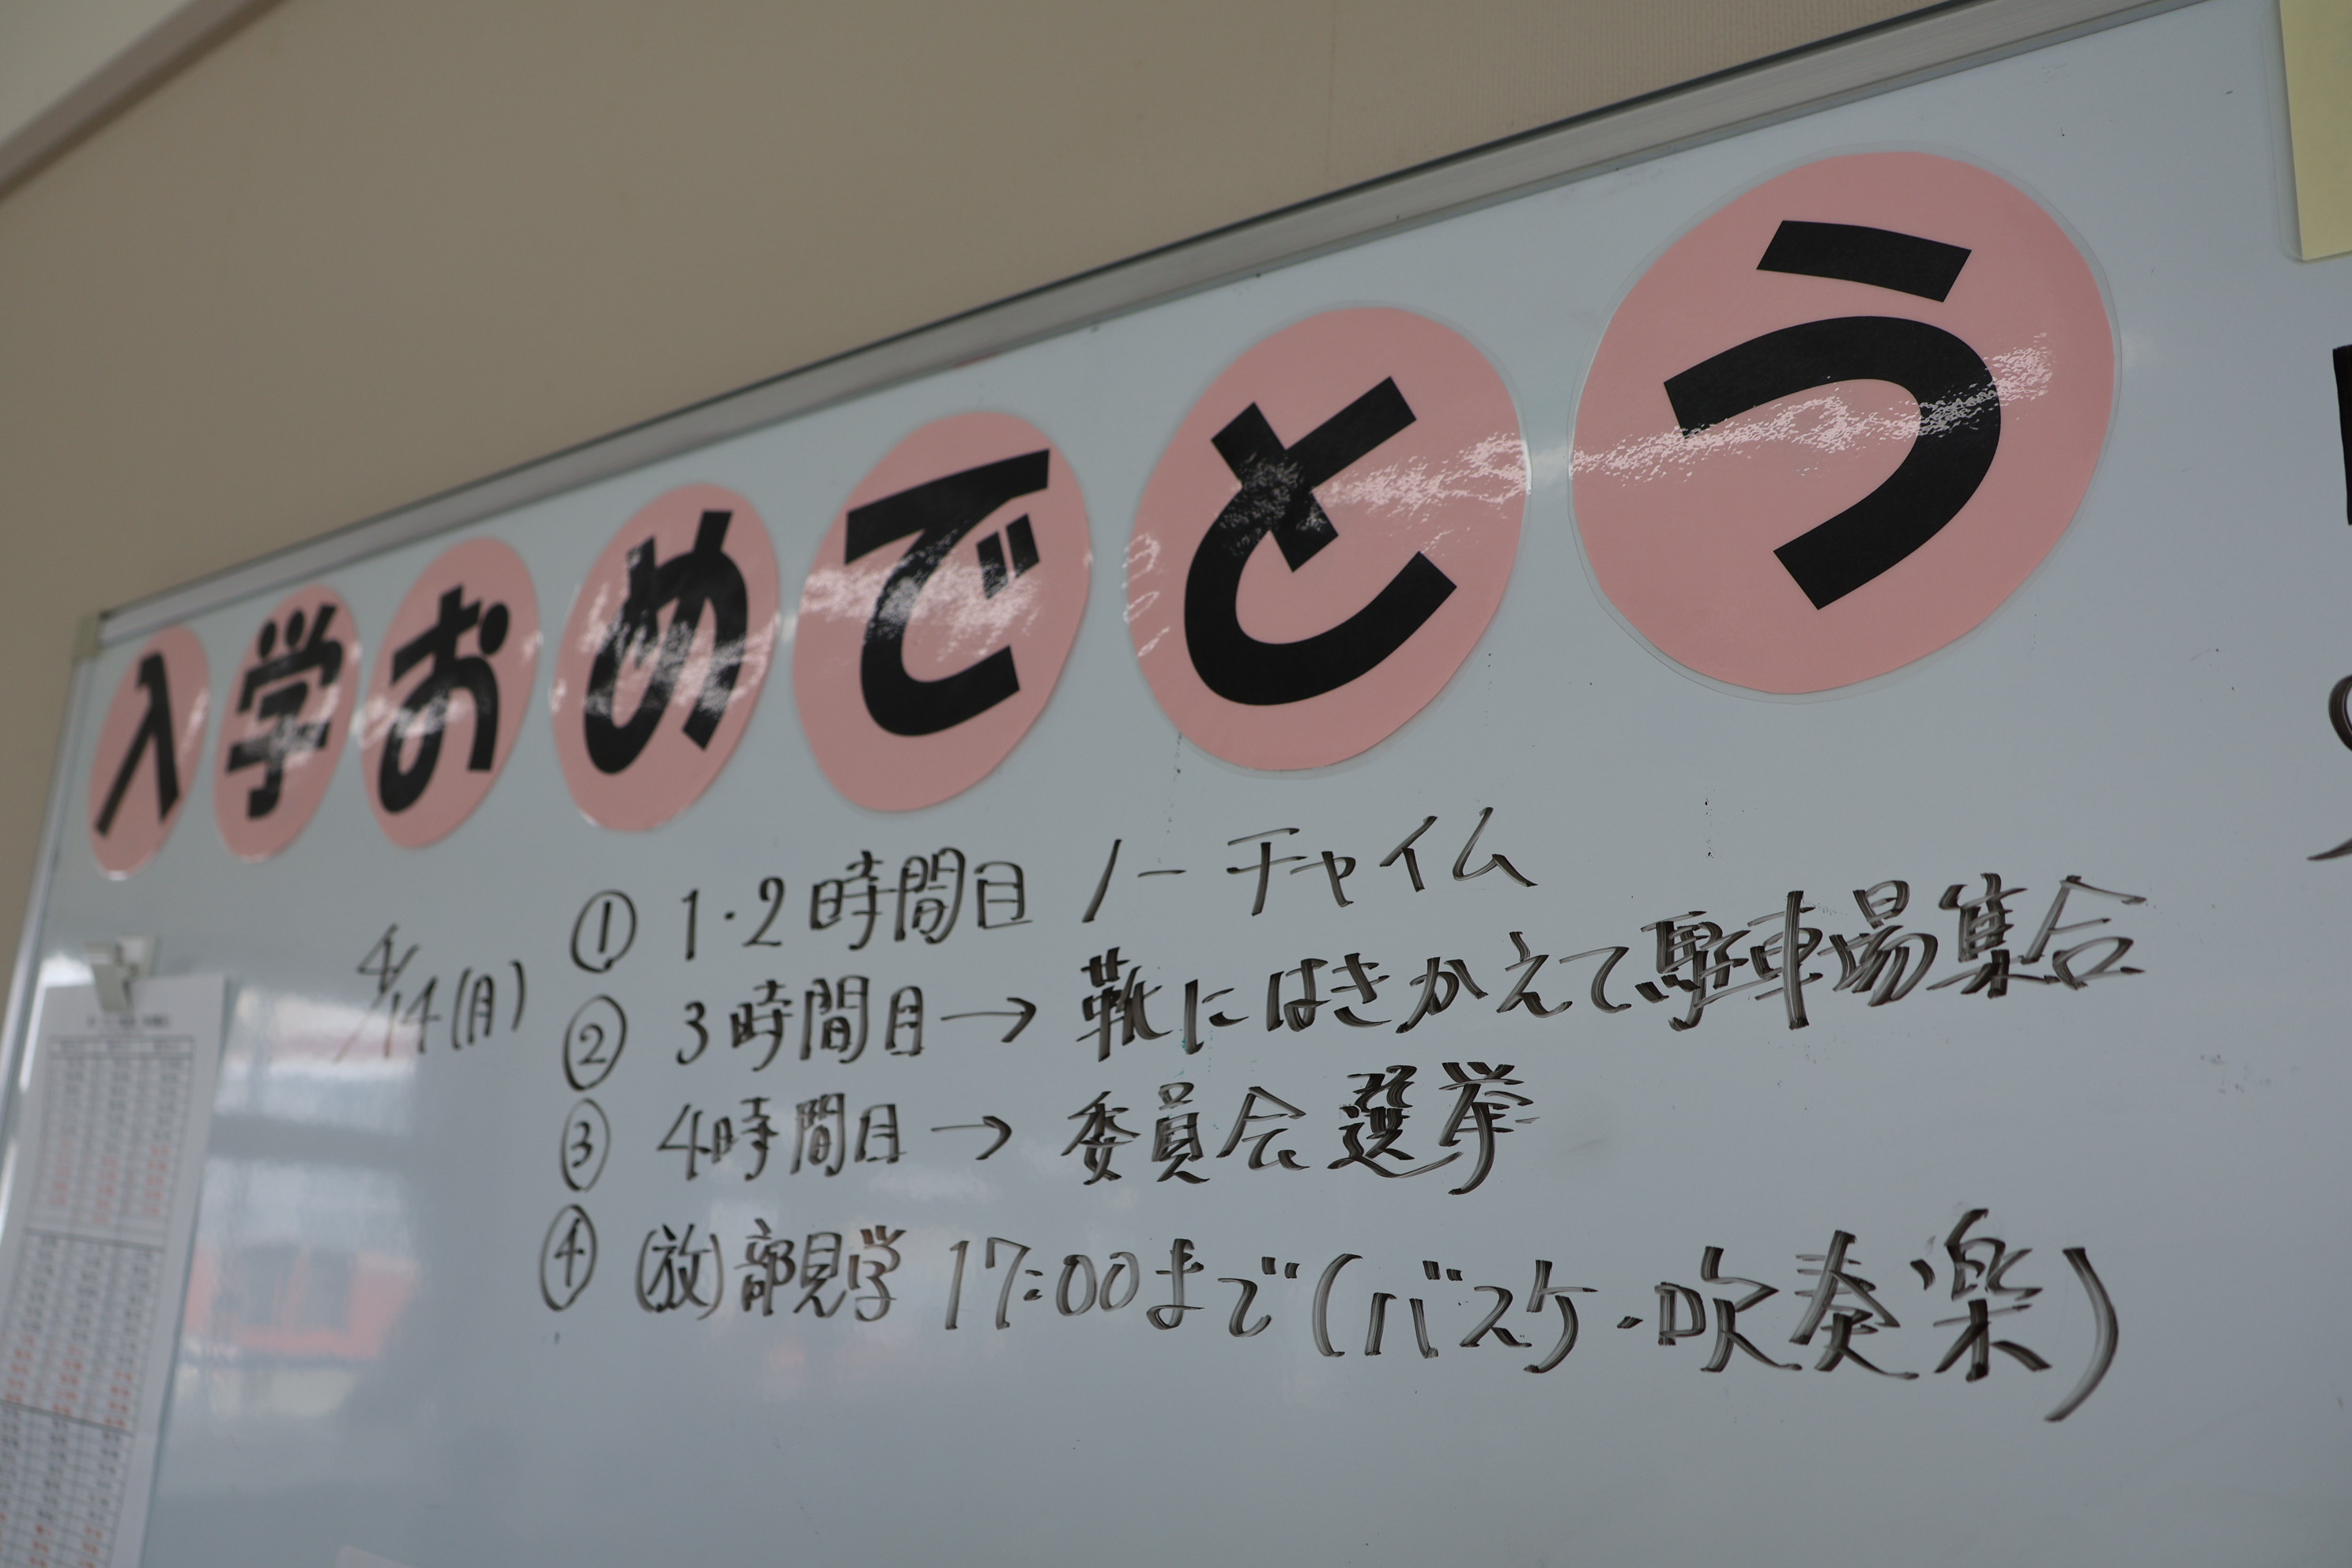 入学おめでとう
4/14(月)
① 1・2時間目 ノーチャイム
② 3時間目→靴にはきかえて駐車場集合
③ 4時間目→委員会選挙
④ (放)部見学 17:00まで(バスケ・吹奏楽)